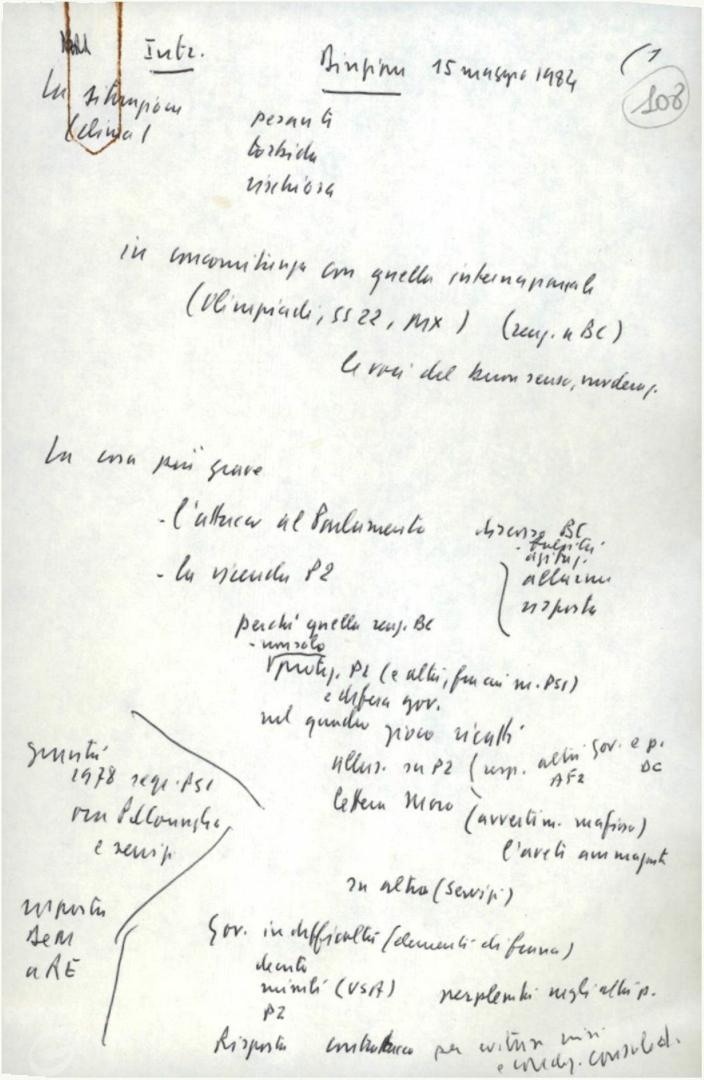 Intr.
Direzione 15 maggio 1984
(1
108
La situazione
(clima)
pesante
torbida
rischiosa
in concomitanza con quella internazionale
(Olimpiadi, SS 22, MX) (reaz. a BC)
le voci del buon senso, moderaz.
La cosa più grave
- l'attacco al Parlamento
discorso BC
- la vicenda P2
allarme
risposta
perché quella reaz. BC
- non solo
protez. P2 (e altri, fra cui m. PSI)
e difesa gov.
nel quadro gioco ricatti
allus. su P2 (resp. altri gov. e p.
DC
lettera Moro (avvertim. mafioso)
l'avete ammazzato
su altro (Servizi)
questa
1978 segr. PSI
con
e servizi
risposta
a RE
Gov. in difficoltà (elementi di
decreto
missili (USA) perplessità negli altri p.
P2
Risposta contrattacco per evitare crisi